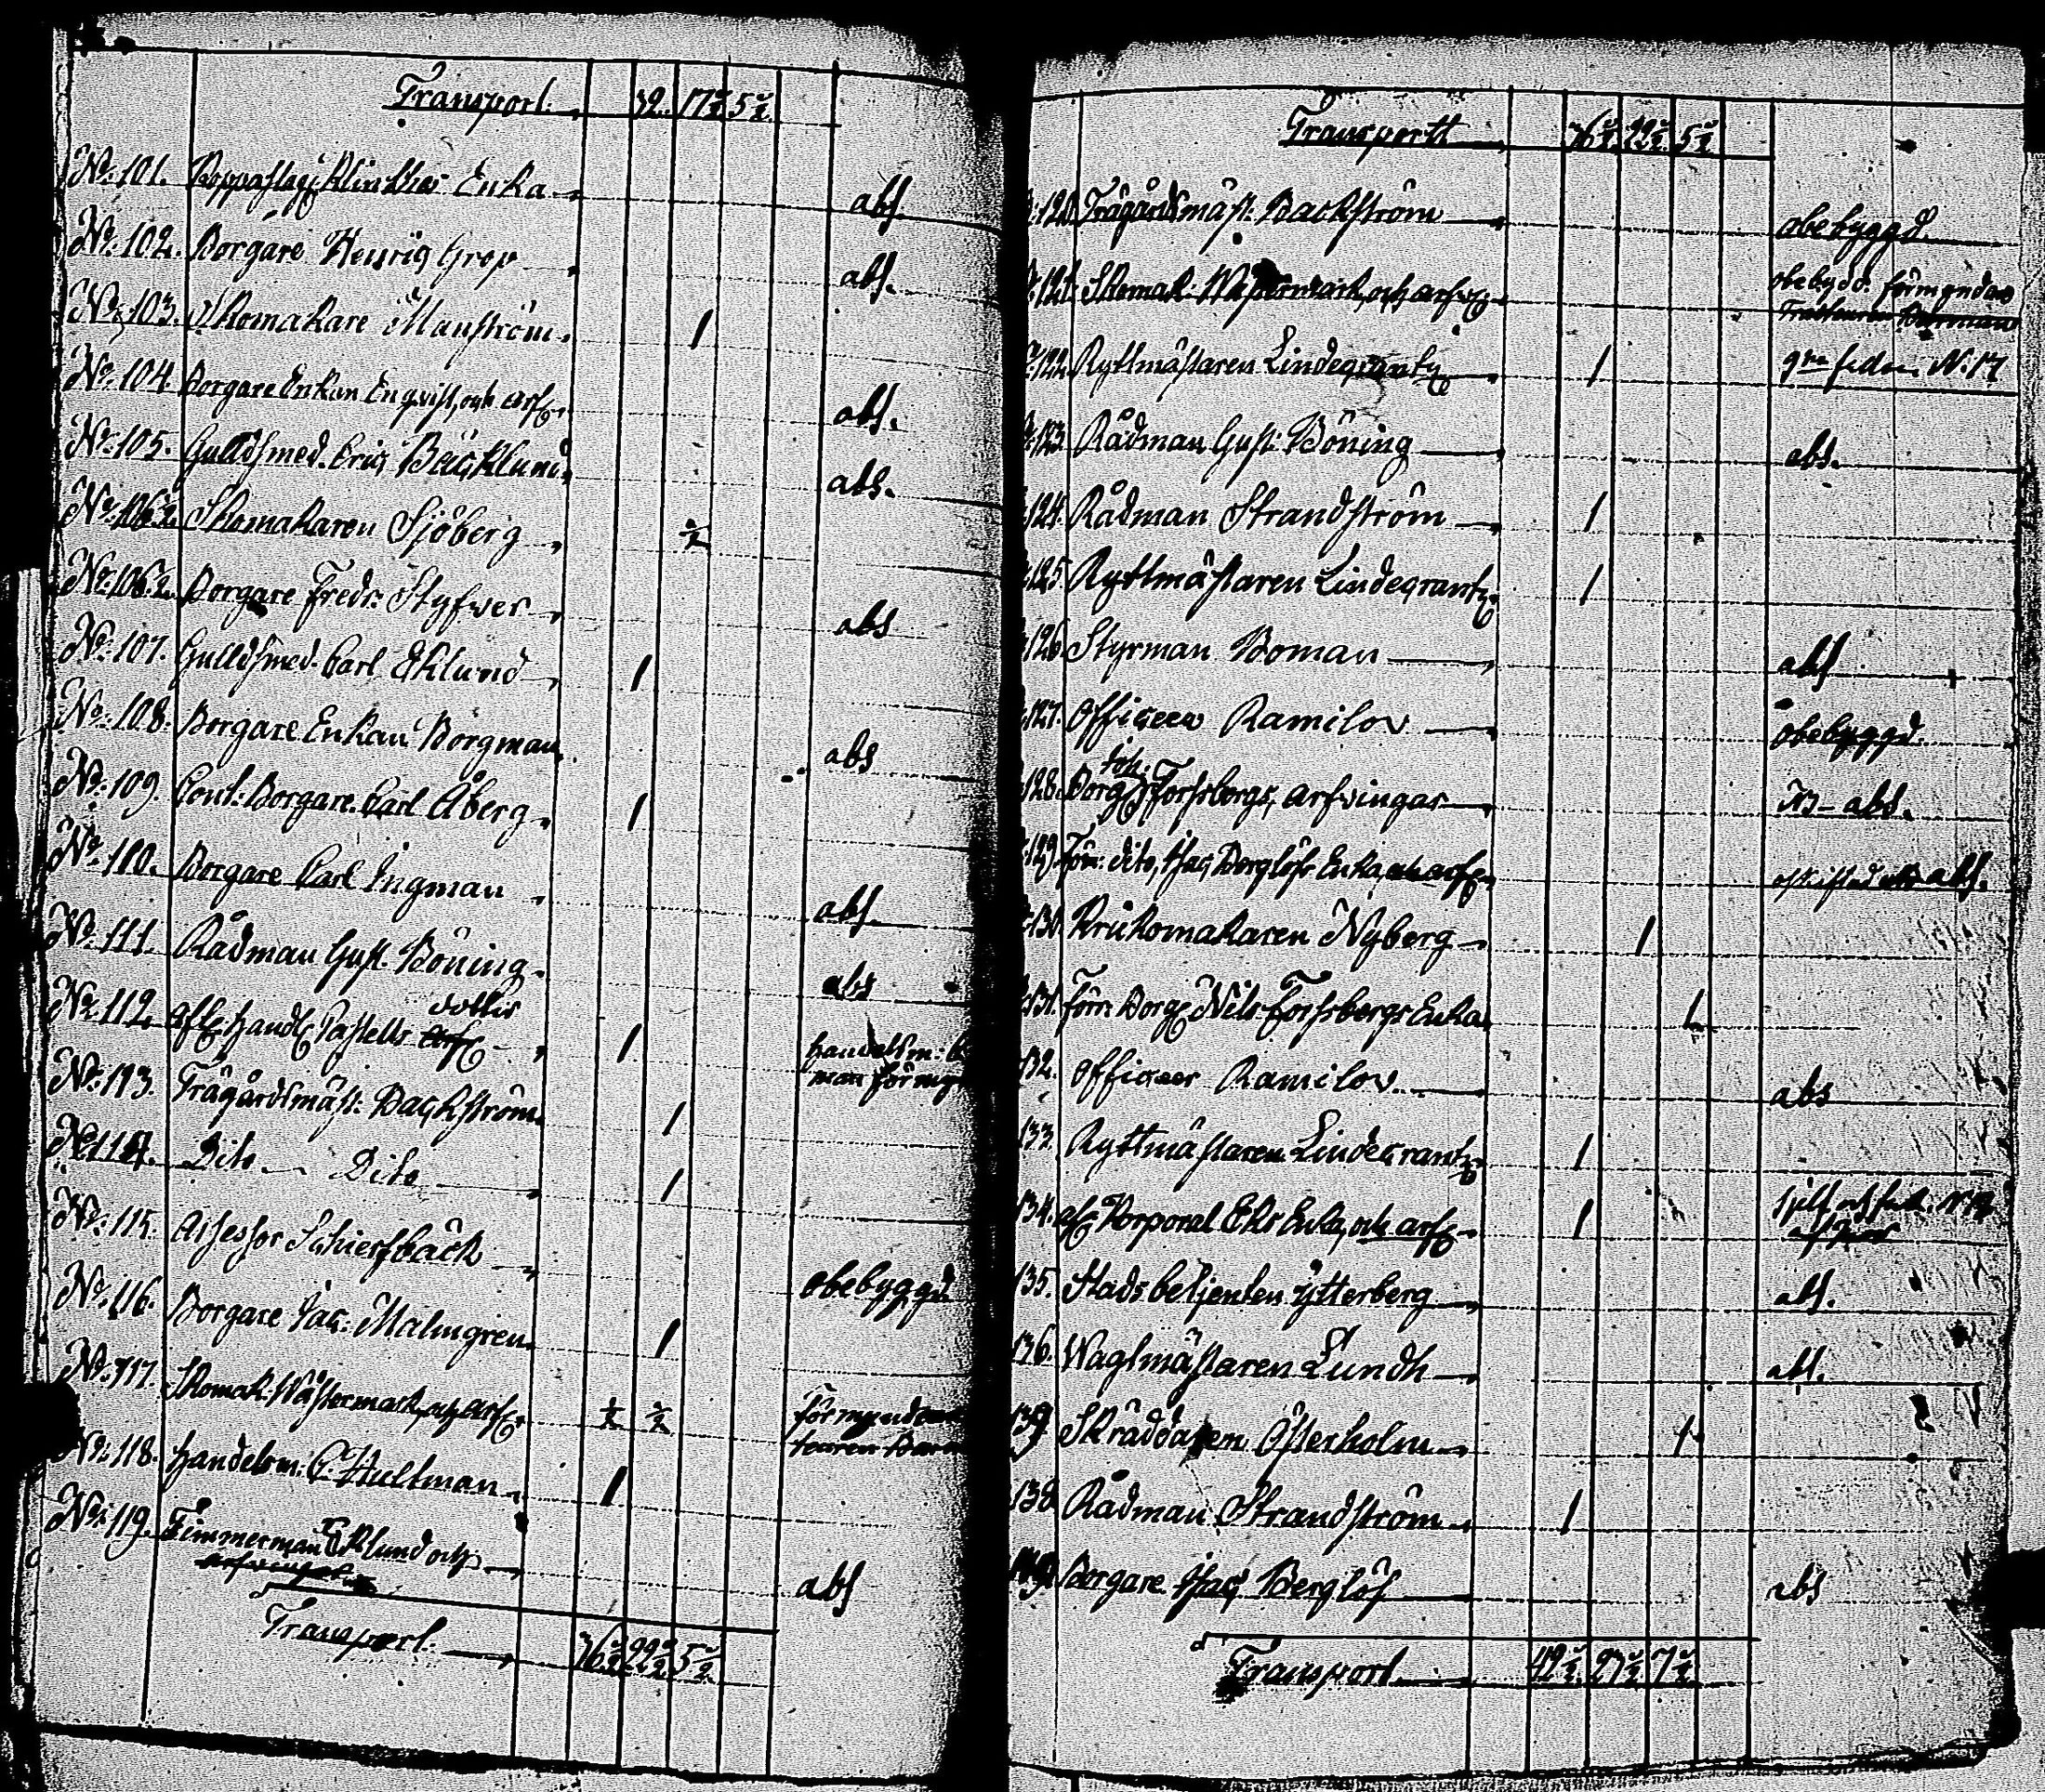 Transport. 32. 17½ 5½
No. 101. Enka abs.
No. 102. Borgare Henric Grop abs.
No. 103. Skomakare Manström 1
No. 104 Borgare Enkan Enqvist, och arf. abs.
No. 105. Gulldsmed. Eric Bäcklund abs.
No. 106½ Skomakaren Sjöberg ½
No. 106½. Borgare Fredr. Styfver abs
No. 107. Gulldsmed. Carl Eklund 1
No. 108. Borgare Enkan Borgman abs
No. 109. Cont: Borgare. Carl Åberg 1
No. 110. Borgare Carl Ingman abs.
No. 111. Rådman Gust. Böning abs
dotter
No. 112. afl. handl. Pastells arf 1 handelsm:
man förmyn
No. 113. Trägårdsmäst. Backström 1
No. 114. Dito Dito 1
No. 115. Assessor Schierfbäck obebyggd
No. 116. Borgare Jac: Malmgren 1
No. 117. Skomak: Wästermark, och arf. ½ ½ förmyndare
No. 118. Handelsm: C. Hultman 1
No. 119. Timmerman Eklund och abs
arfvingar
Transport. 36½ 22½ 5½
Transportt 36½ 22½ 5½
120. Trägårdsmäst. Backström obebyggd.
121. Skomak: Wästermark, och arfvg obebygd. förmyndare
122. Ryttmästaren Lindecrantz 1 No. 17
123. Rådman Gust: Böning abs.
124. Rådman Strandström 1
125. Ryttmästaren Lindecrantz 1
126. Styrman Boman abs
127. Officeren Ramilov obebyggd.
128. Borg. Forssbergs, arfvingar abs.
129. Förr: dito, Isac Berglöfs Enka, och arf. abs.
130. Krukomakaren Nyberg 1
131. Förr: Borg. Nils Forssbergs Enka 1
132. Officeer Ramilov abs
133. Ryttmästaren Lindecrantz 1
134. afl. Korporal Eks Enka, och arf. 1
135. Stadsbetjenten Ytterberg abs.
136. Wagtmästaren Lundh abs.
137 Skräddaren Österholm 1
138. Rådman Strandström 1
139. Borgare Isac Berglöf abs
Transport 42½ 23½ 7½